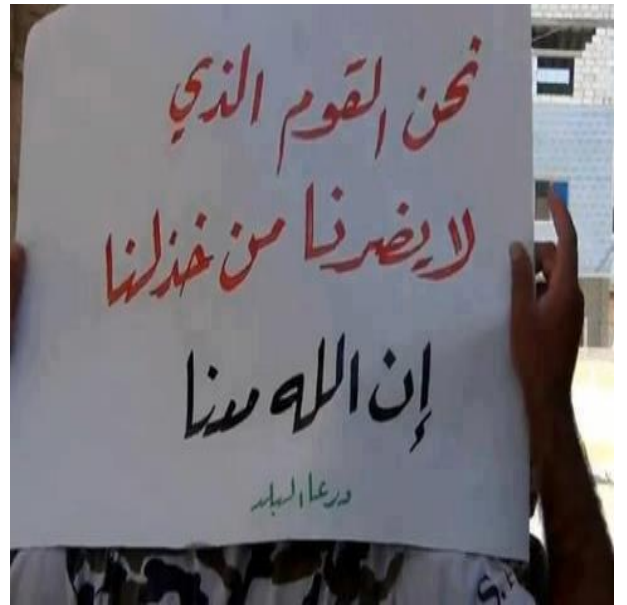 نحن القوم الذي
لا يضرنا من خذلنا
إن الله معنا
درعا البلد